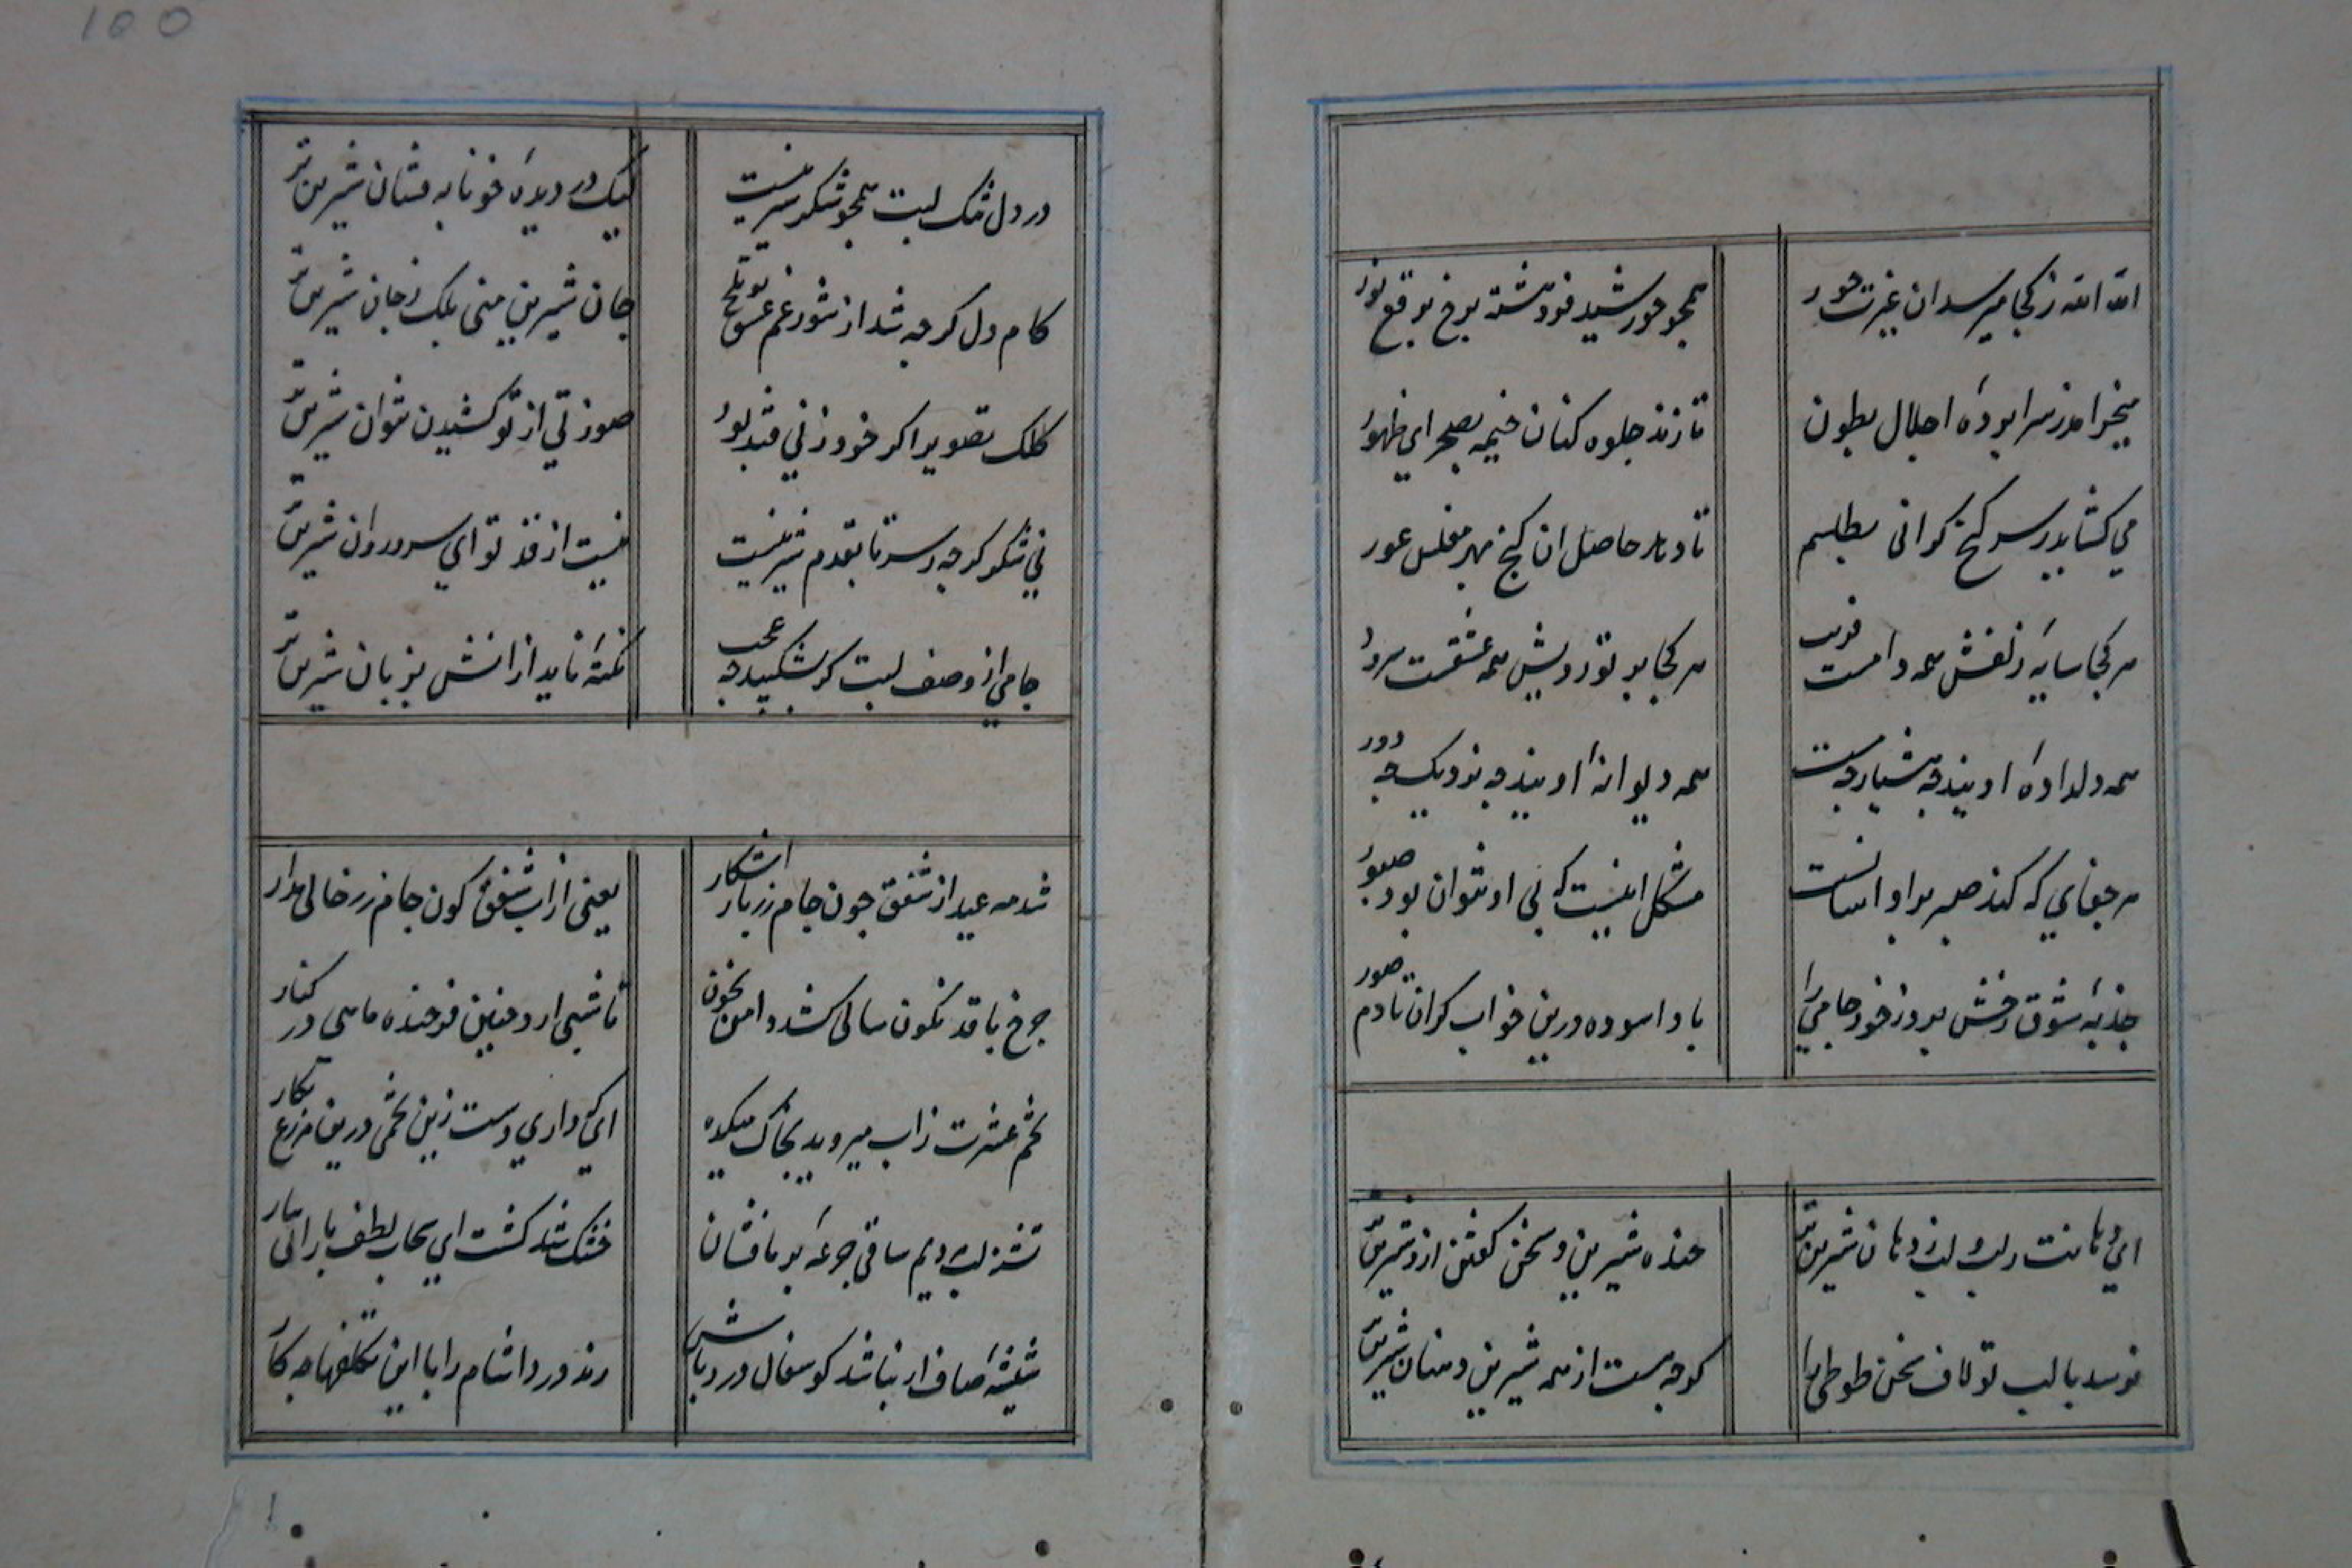 الله الله ز کجا میرسد ان غیرت حور
همجو خورشید فروهشته برخ برقع نور
میخرامد ز سرابردهٔ اجلال بطون
تا زند جلوه کنان خیمه بصحرای ظهور
می کشاید ز سر کنج کرانی بطلسم
تا دهد حاصل ان کنج بهر مفلس عور
هر کجا سایه زلفش همه دامست فریب
هر کجا برتو رویش همه عشقست سرور
همه دلدادهٔ اویند جه هشیار جه مست
همه دیوانهٔ اویند جه نزدیک جه دور
هر جفای که کند صبر بر او اسانست
مشکل اینست که بی او نتوان بود صبور
جذبهٔ شوق رخش برد ز خود جامی را
باد اسوده درین خواب کران تا دم صور
ای دهانت ز لب و لب ز دهان شیرین تر
خنده شیرین و سخن کفتن ازو شیرین تر
نرسد با لب تو لاف سخن طوطی را
کرجه هست از همه شیرین دهنان شیرین تر
در دل تنک لبت همجو شکر شیرینست
لیک در دیدهٔ خونابه فشان شیرین تر
کام دل کرجه شد از شور غم عشق تو تلخ
جان شیرین منی بلک ز جان شیرین تر
کلک تصویر اکر خود ز نی قند بود
صورتی از تو کشیدن نتوان شیرین تر
نی شکر کرجه ز سر تا بقدم شیرینست
نیست از قد تو ای سرو روان شیرین تر
جامی از وصف لبت کر شکند جه عجب
نکتهٔ ناید ازانش بزبان شیرین تر
شد مه عید از شفق جون جام زربار اشکار
یعنی از اب شفق کون جام زر خالی مدار
جرخ با قد نکون سالی کشد دامن بخون
تا شبی ارد جنین فرخنده ماهی در کنار
تخم عشرت ز اب میروید بخاک میکده
ای که داری دست زین تخمی درین مزرع بکار
تشنه لب دیم ساقی جرعهٔ بر ما فشان
خشک شد کشت ای سحاب لطف بارانی ببار
شیشهٔ صاف ار نباشد کو سفال درد باش
رند درد اشام را با این تکلفها جه کار